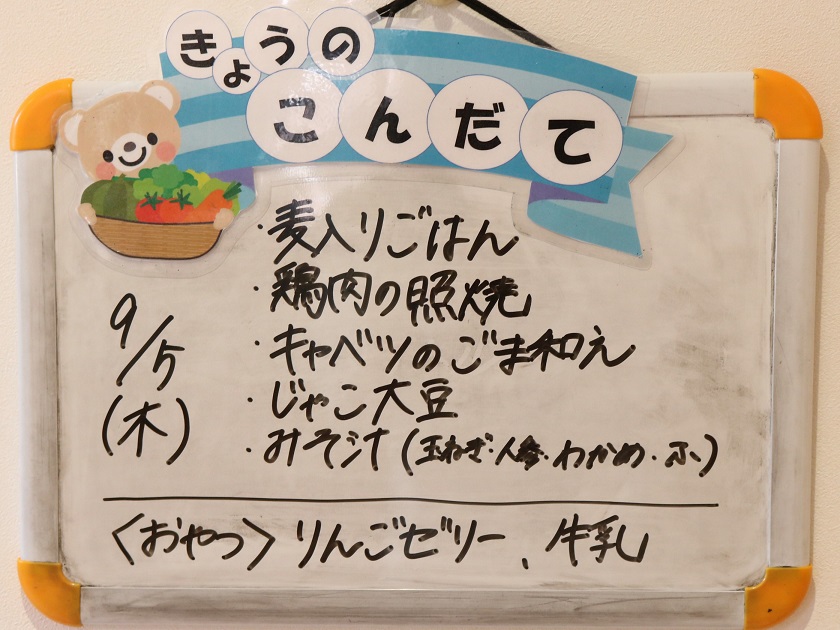 きょうの
こんだて
・麦入りごはん
・鶏肉の照焼
・キャベツのごま和え
・じゃこ大豆
・みそ汁(玉ねぎ・人参・わかめ・ふ)
9/5
(木)
〈おやつ〉りんごゼリー、牛乳